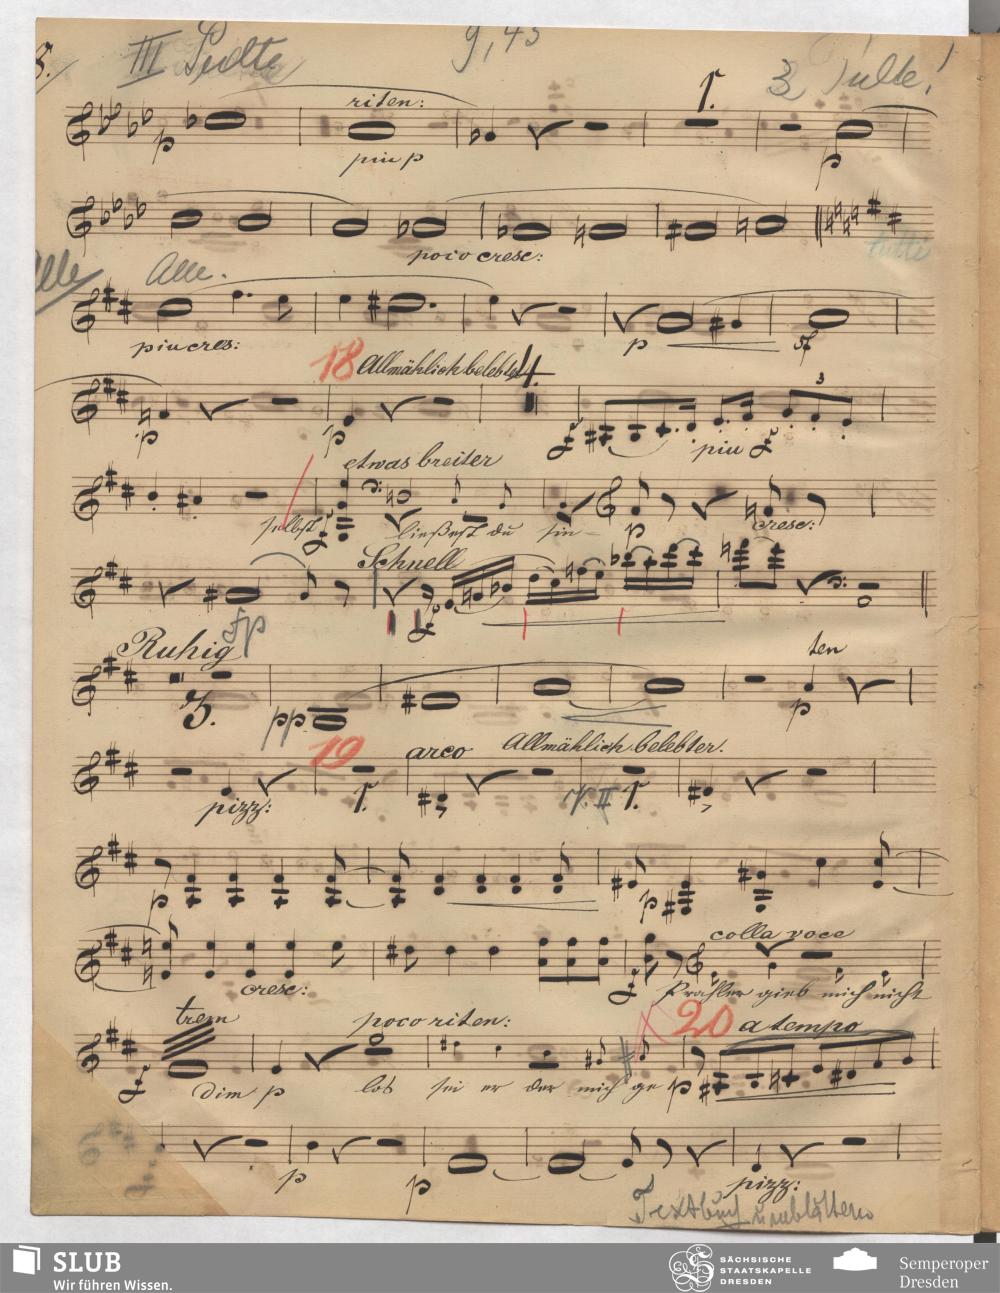 III Pulte 9,45 3 Pulte!
riten: 1.
p piu p p
poco cresc: tutti
Alle Alle.
piu cres: p sf
18 Allmählich belebter 4.
p p f piu f 3
etwas breiter
selbst f ließest du sin- p cresc:
Schnell
fp f
Ruhig ten
3. pp p
19 arco Allmählich belebter.
pizz: 1. V. II 1.
p p
colla voce
cresc: f Prahler gieb mich nicht
trem poco riten: 20 a tempo
f dim p los sei er der mich ge p
p p pizz:
Textbuch umblättern
SLUB
Wir führen Wissen.
SÄCHSISCHE
STAATSKAPELLE
DRESDEN
Semperoper
Dresden